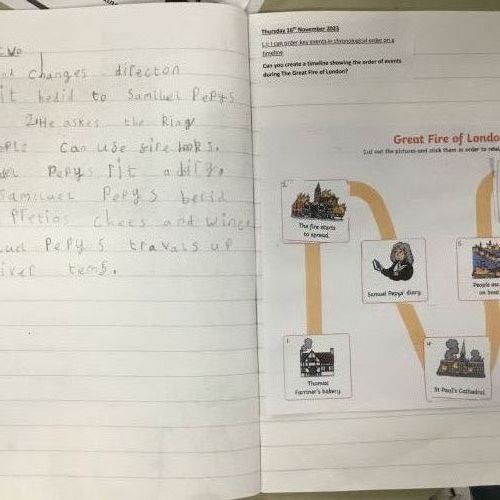 changes directon
it hedid to Samiluel Pepys
2,He askes the King
can use fire hooks.
Pepys rit a diry.
Samiluel Pepys berid
Pretios chees and wine
Pepys travals up
tems.
Thursday 16th November 2023
L.I: I can order key events in chronological order on a
timeline
Can you create a timeline showing the order of events
during The Great Fire of London?
Great Fire of Londo
Cut out the pictures and stick them in order to retel
2.
The fire starts
to spread.
Samuel Pepys' diary.
5.
People esc
on boat
1.
Thomas
Farriner's bakery.
4.
St Paul's Cathedral.